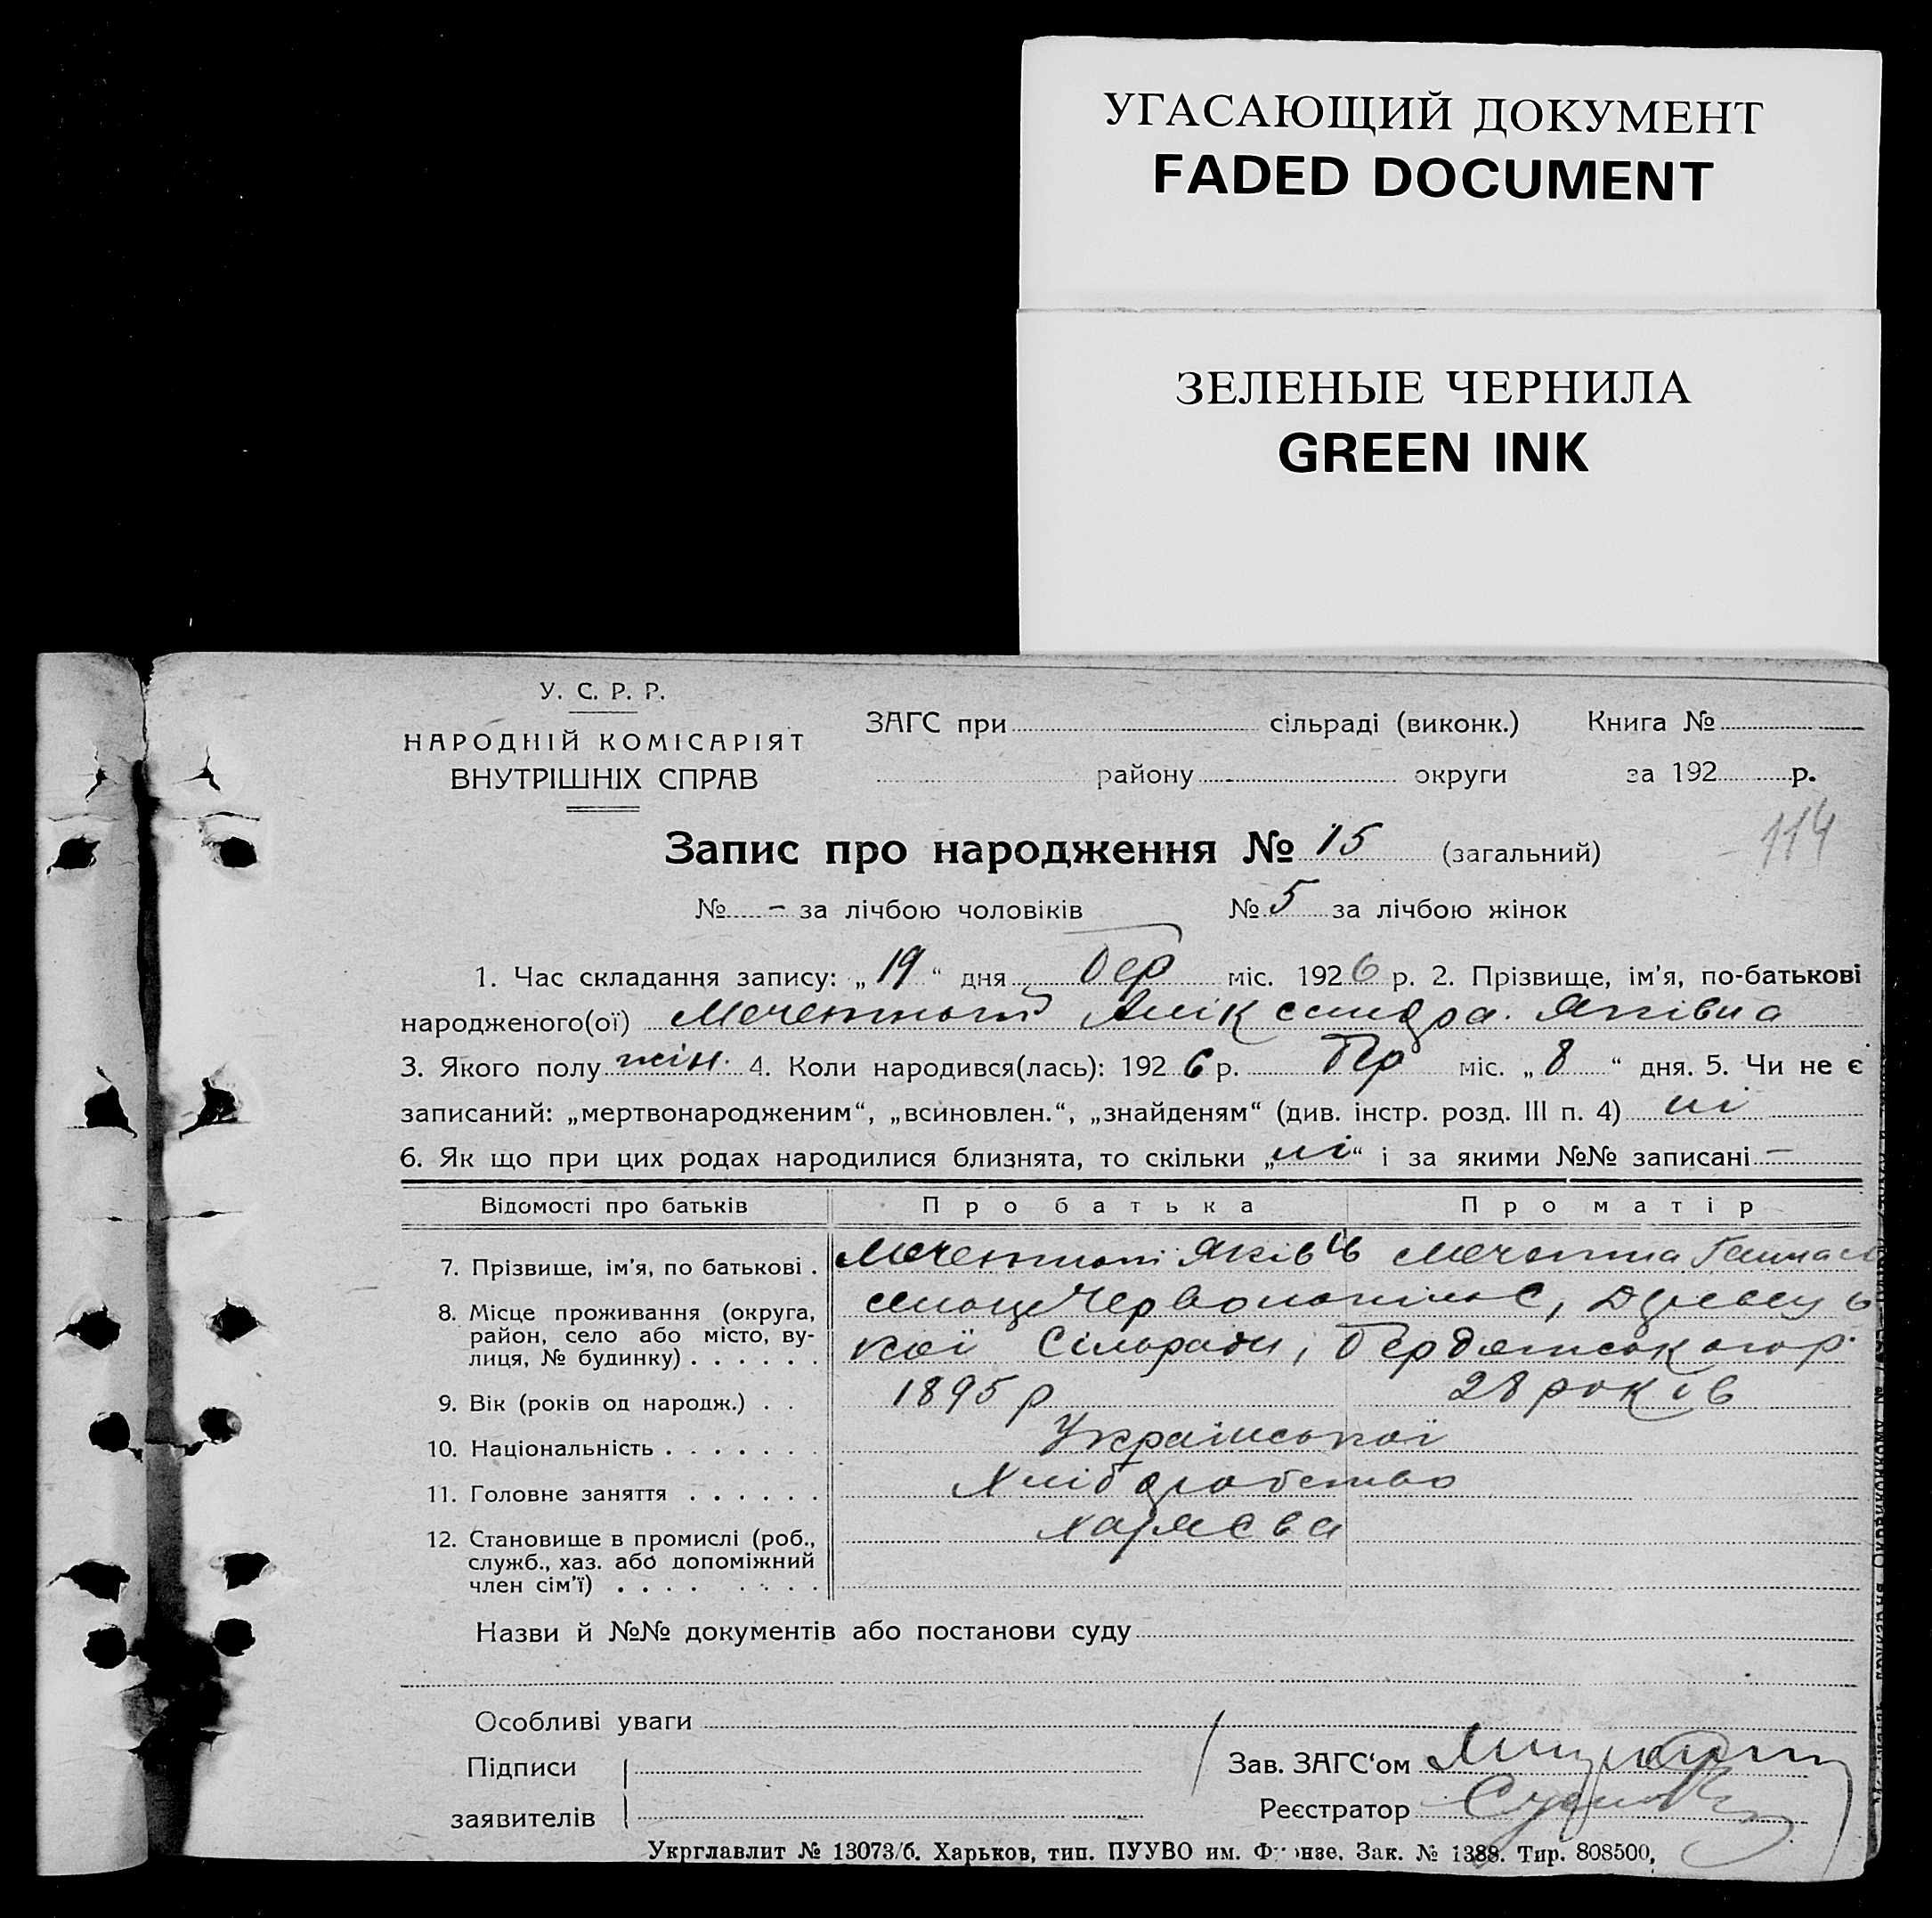 УГАСАЮЩИЙ ДОКУМЕНТ
FADED DOCUMENT
ЗЕЛЕНЫЕ ЧЕРНИЛА
GREEN INK
У. С. Р. Р.
НАРОДНІЙ КОМІСАРІЯТ
ВНУТРІШНІХ СПРАВ
ЗАГС при сільраді (виконк.) Книга №
району округи за 192 р.
114
Запис про народження № 15 (загальний)
№ - за лічбою чоловіків № 5 за лічбою жінок
1. Час складання запису: „19“ дня бер міс. 1926 р. 2. Прізвище, ім'я, по-батькові
народженого(ої) Яківна
3. Якого полу жін. 4. Коли народився(лась): 1926 р. бер міс. „8“ дня. 5. Чи не є
записаний: „мертвонародженим“, „всиновлен.“, „знайденям“ (див. інстр. розд. III п. 4) ні
6. Як що при цих родах народилися близнята, то скільки „ні“ і за якими №№ записані —
Відомості про батьків Про батька Про матір
7. Прізвище, ім'я, по батькові .
8. Місце проживання (округа,
район, село або місто, ву-
лиця, № будинку) . . . . . . кої Сільради,
9. Вік (років од народж.) . . 1895 р 28 років
10. Національність . . . . . . . Української
11. Головне заняття . . . . . . Хліборобство
12. Становище в промислі (роб.,
служб., хаз. або допоміжний
член сім'ї) . . . . . . . .
Назви й №№ документів або постанови суду
Особливі уваги
Підписи Зав. ЗАГС'ом
заявителів Реєстратор
Укрглавлит № 13073/б. Харьков, тип. ПУУВО им. Фрунзе. Зак. № 1388. Тир. 808500,